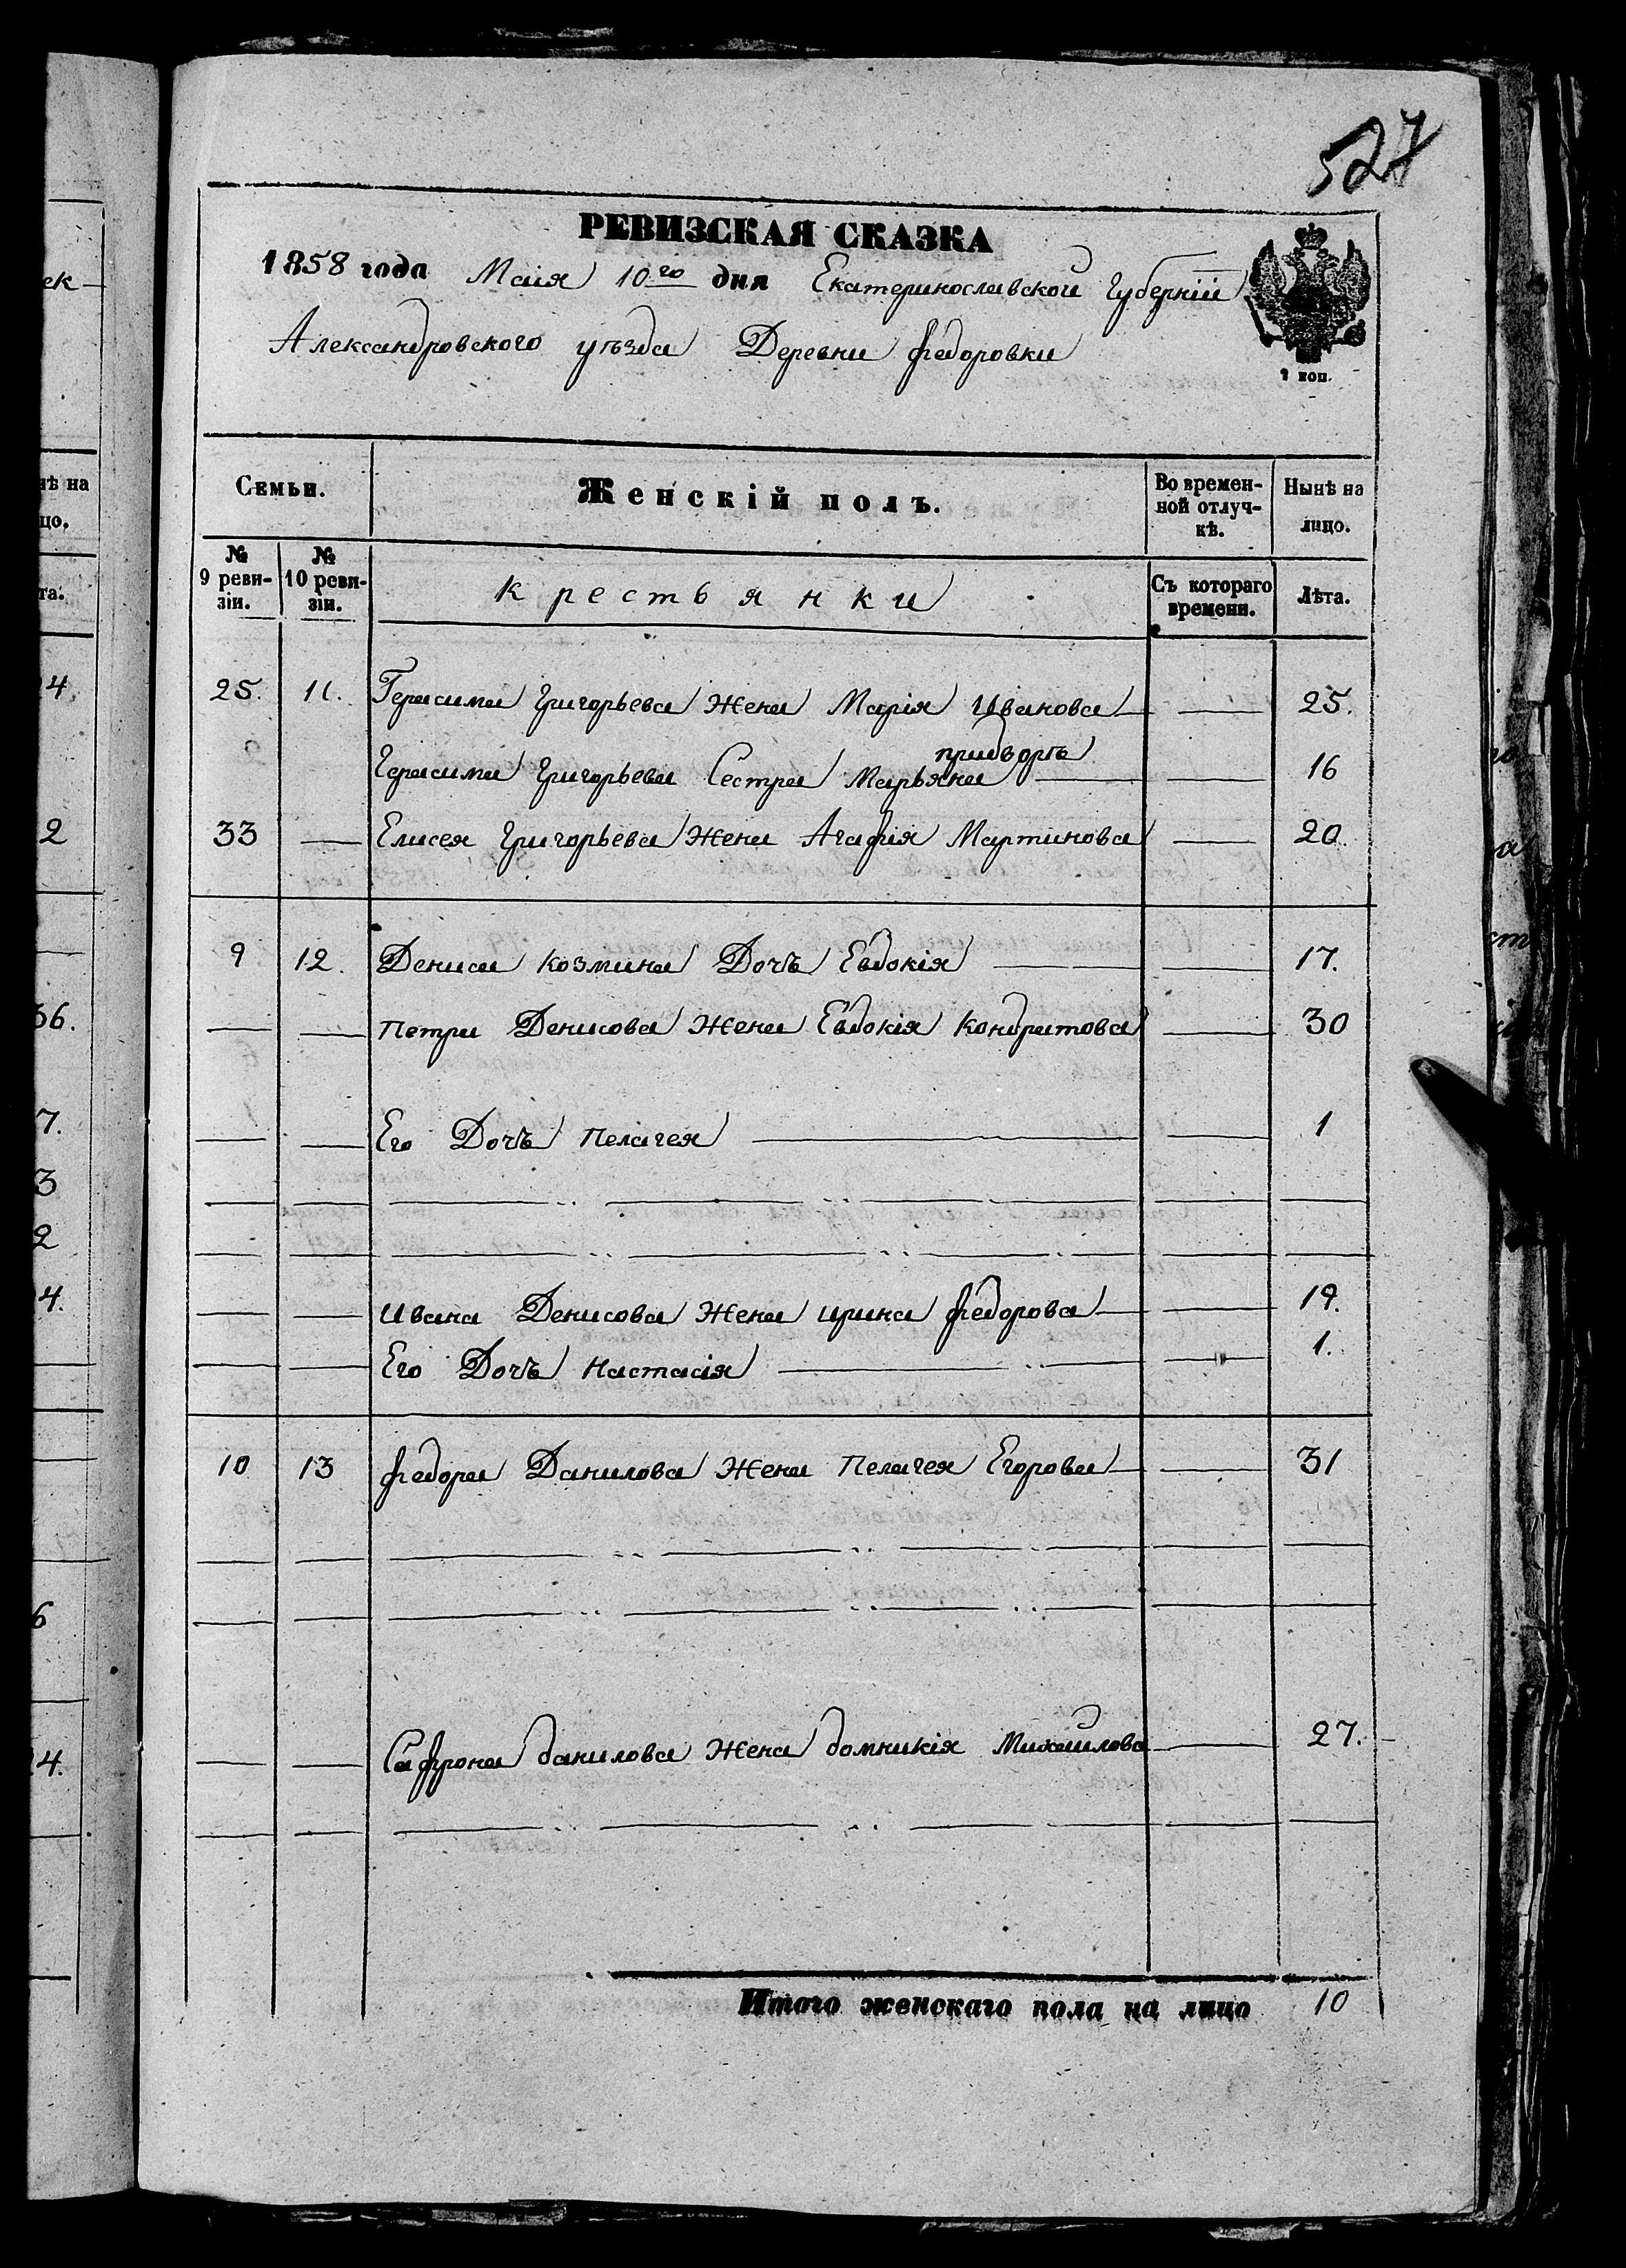 527
РЕВИЗСКАЯ СКАЗКА
1858 года Маія 10го дня Екатеринославской Губерніи
Александровского уѣзда Деревни Федоровки
2 коп.
Семьи. Женскій полъ. Во времен-ной отлуч-кѣ. Нынѣ на лицо.
№ 9 реви-зіи. № 10 реви-зіи. Крестьянки Съ котораго времени. Лѣта.
25. 11. Герасима Григорьева Жена Марія Иванова 25.
придворѣ
Герасима Григорьева Сестра Марьяна 16
33 Елисея Григорьева Жена Агафія Мартинова 20.
9 12. Дениса Козмина Дочь Евдокія 17.
Петра Денисова Жена Евдокія Кондратова 30
Его Дочь Пелагея 1
Ивана Денисова Жена Ирина Федорова 19.
Его Дочь Настасія 1.
10 13 Федора Данилова Жена Пелагея Егорова 31
Сафрона Данилова Жена Домникія Михайлова 27.
Итого женскаго пола на лицо 10